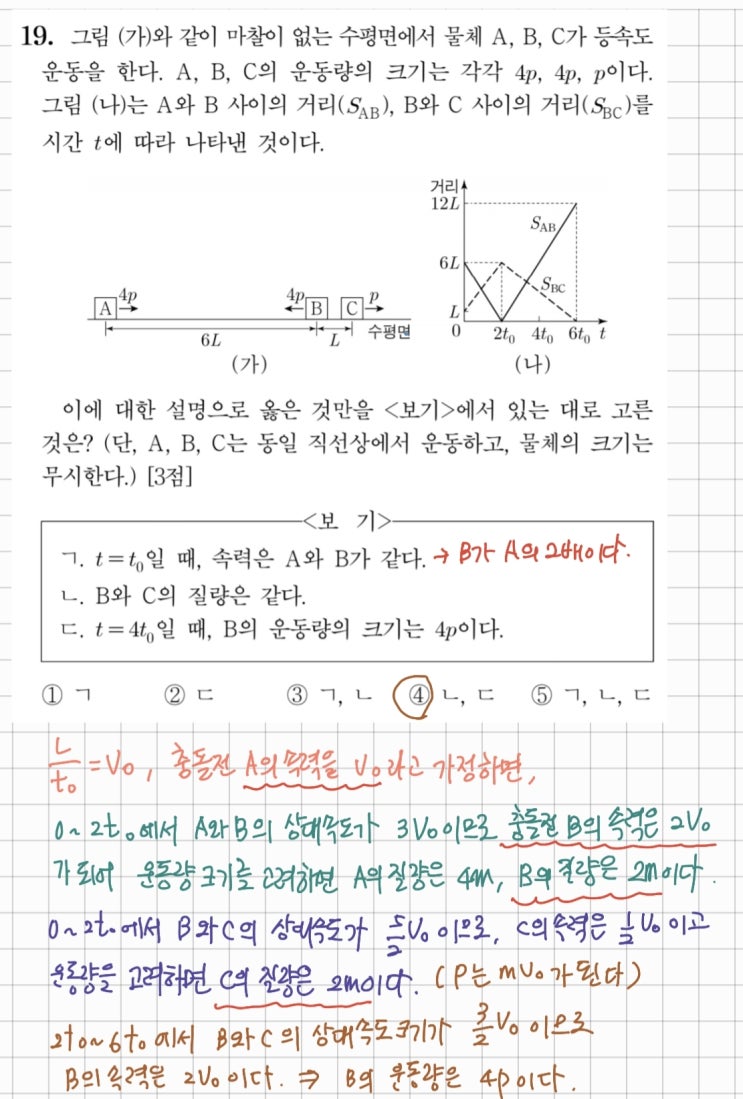 19. 그림 (가)와 같이 마찰이 없는 수평면에서 물체 A, B, C가 등속도
운동을 한다. A, B, C의 운동량의 크기는 각각 4p, 4p, p이다.
그림 (나)는 A와 B 사이의 거리(S_AB), B와 C 사이의 거리(S_BC)를
시간 t에 따라 나타낸 것이다.
거리
12L
S_AB
6L
S_BC
L
0 2t₀ 4t₀ 6t₀ t
(나)
4p 4p p
A B C
6L L 수평면
(가)
이에 대한 설명으로 옳은 것만을 <보기>에서 있는 대로 고른
것은? (단, A, B, C는 동일 직선상에서 운동하고, 물체의 크기는
무시한다.) [3점]
<보 기>
ㄱ. t=t₀일 때, 속력은 A와 B가 같다. → B가 A의 2배이다.
ㄴ. B와 C의 질량은 같다.
ㄷ. t=4t₀일 때, B의 운동량의 크기는 4p이다.
① ㄱ ② ㄷ ③ ㄱ, ㄴ ④ ㄴ, ㄷ ⑤ ㄱ, ㄴ, ㄷ
L/t₀ = V₀, 충돌전 A의 속력을 V₀라고 가정하면,
0~2t₀에서 A와 B의 상대속도가 3V₀이므로 충돌전 B의 속력은 2V₀
가 되어 운동량 크기를 고려하면 A의 질량은 4m, B의 질량은 2m이다.
0~2t₀에서 B와 C의 상대속도가 5/2V₀이므로, C의 속력은 1/2V₀이고
운동량을 고려하면 C의 질량은 2m이다. (P는 mV₀가 된다)
2t₀~6t₀에서 B와 C의 상대속도크기가 3/2V₀이므로
B의 속력은 2V₀이다. ⇒ B의 운동량은 4p이다.